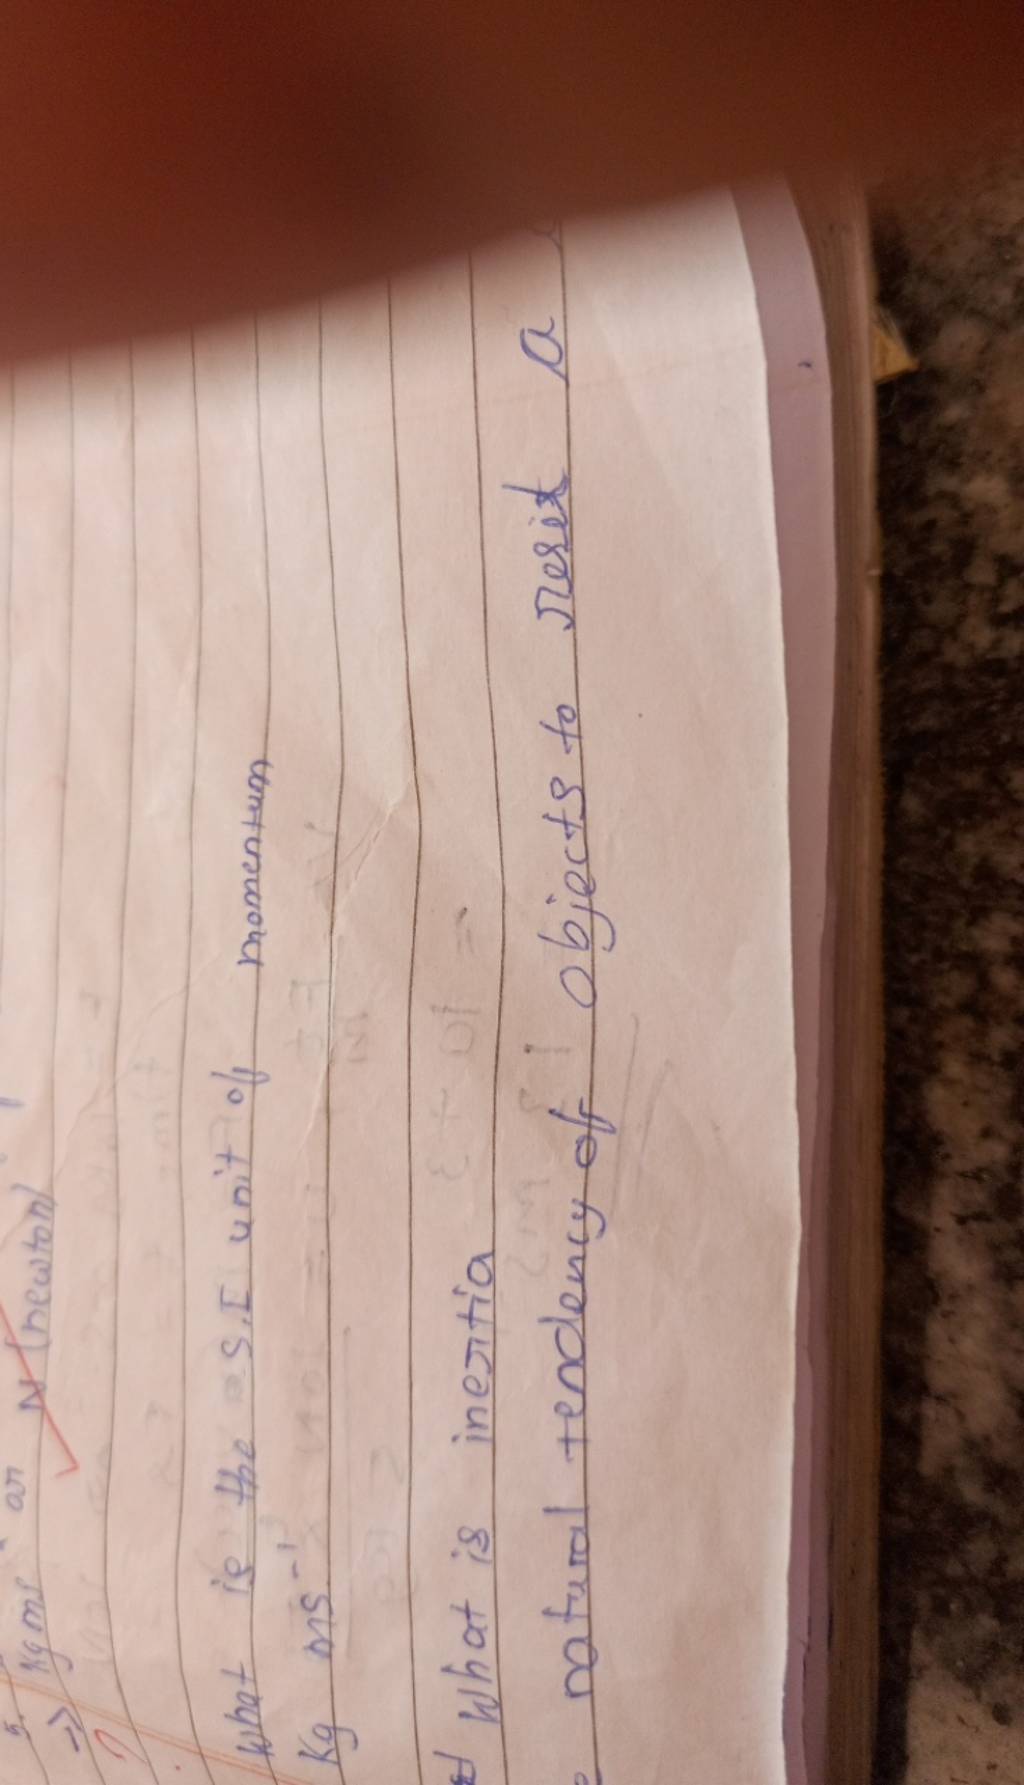 5. kgms or N (newton)
what is the S.I unit of momentum
Kg ms⁻¹
What is inertia
natural tendency of objects to resist a